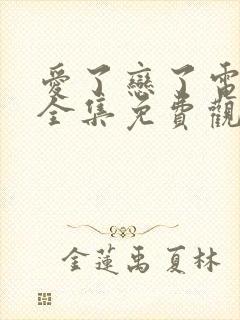 愛了戀了電
全集免費觀
金蓮禹夏林